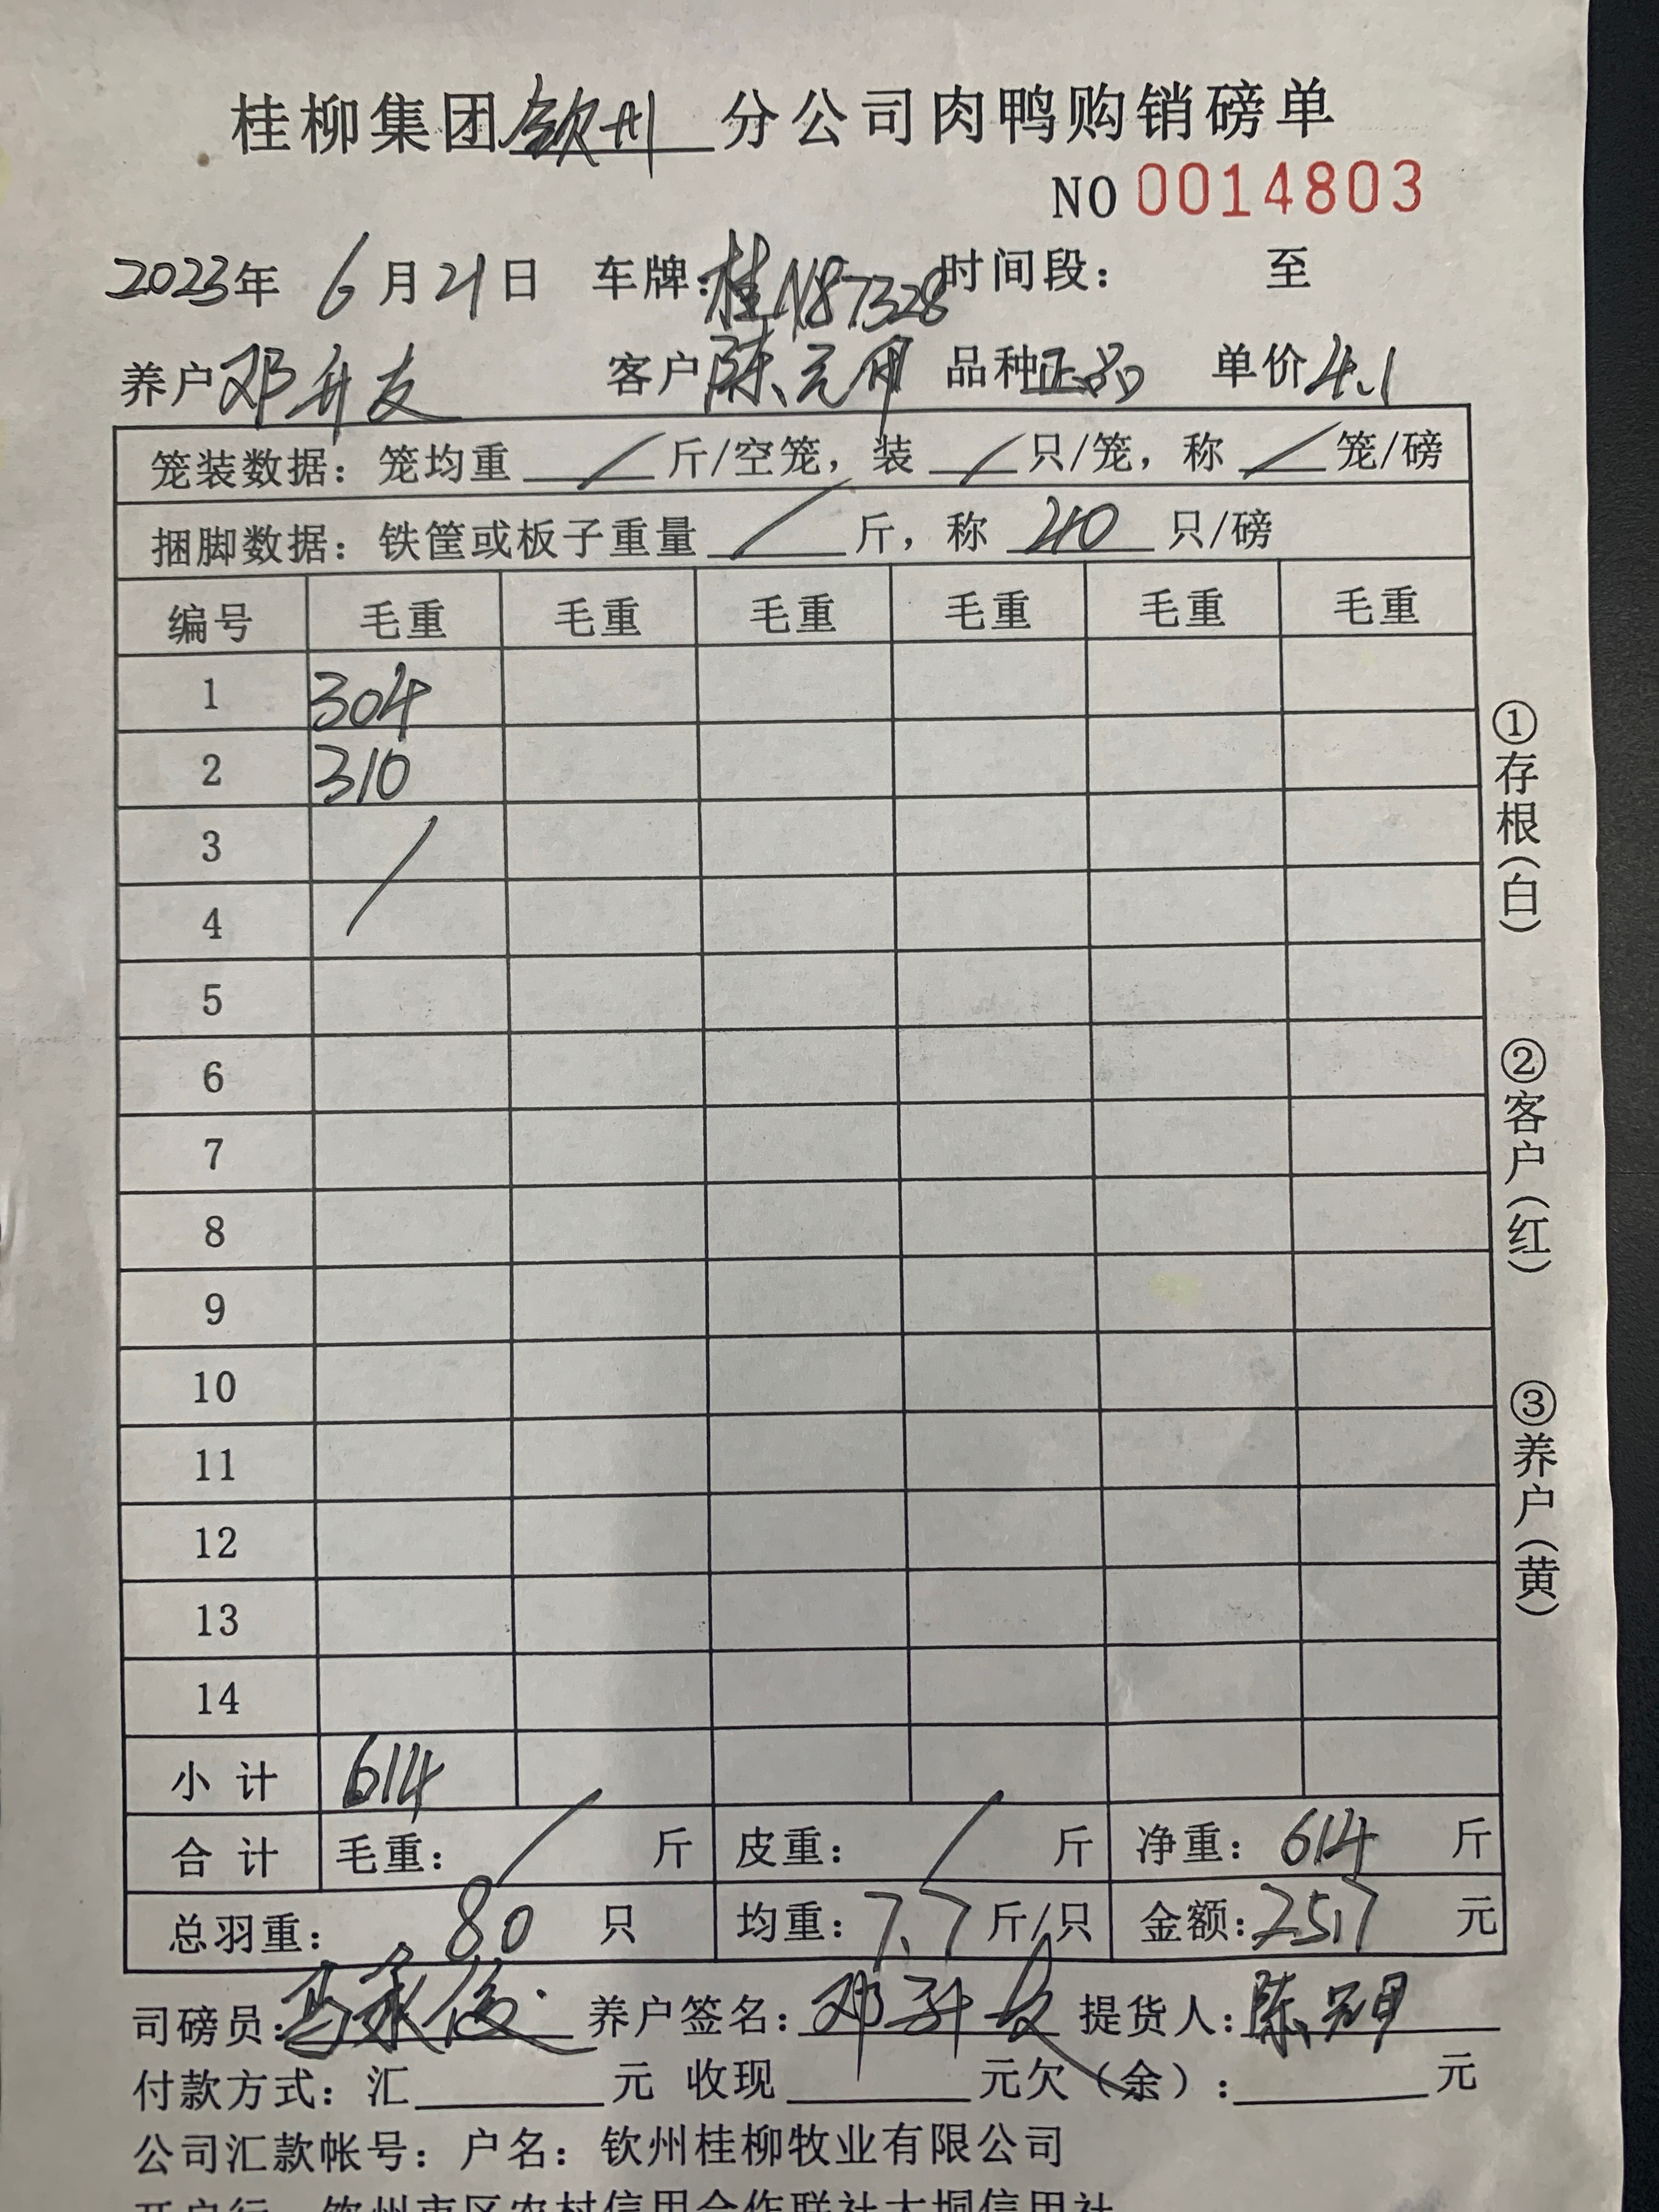 桂柳集团钦州分公司肉鸭购销磅单
NO 0014803
2023年 6月21日 车牌:桂N87328 时间段: 至
养户 邓升友 客户 陈元用 品种 正品 单价 4.1
笼装数据: 笼均重 / 斤/空笼, 装 / 只/笼, 称 / 笼/磅
捆脚数据: 铁筐或板子重量 / 斤, 称 40 只/磅
编号 毛重 毛重 毛重 毛重 毛重 毛重
1 304
2 310
3 /
4
5
6
7
8
9
10
11
12
13
14
小计 614
合计 毛重: / 斤 皮重: / 斤 净重: 614 斤
总羽重: 80 只 均重: 7.7 斤/只 金额: 2517 元
司磅员: 养户签名: 邓升友 提货人: 陈元用
付款方式: 汇 元 收现 元欠(余): 元
公司汇款帐号: 户名: 钦州桂柳牧业有限公司
开户行: 钦州市区农村信用合作联社大垌信用社
①存根(白)
②客户(红)
③养户(黄)